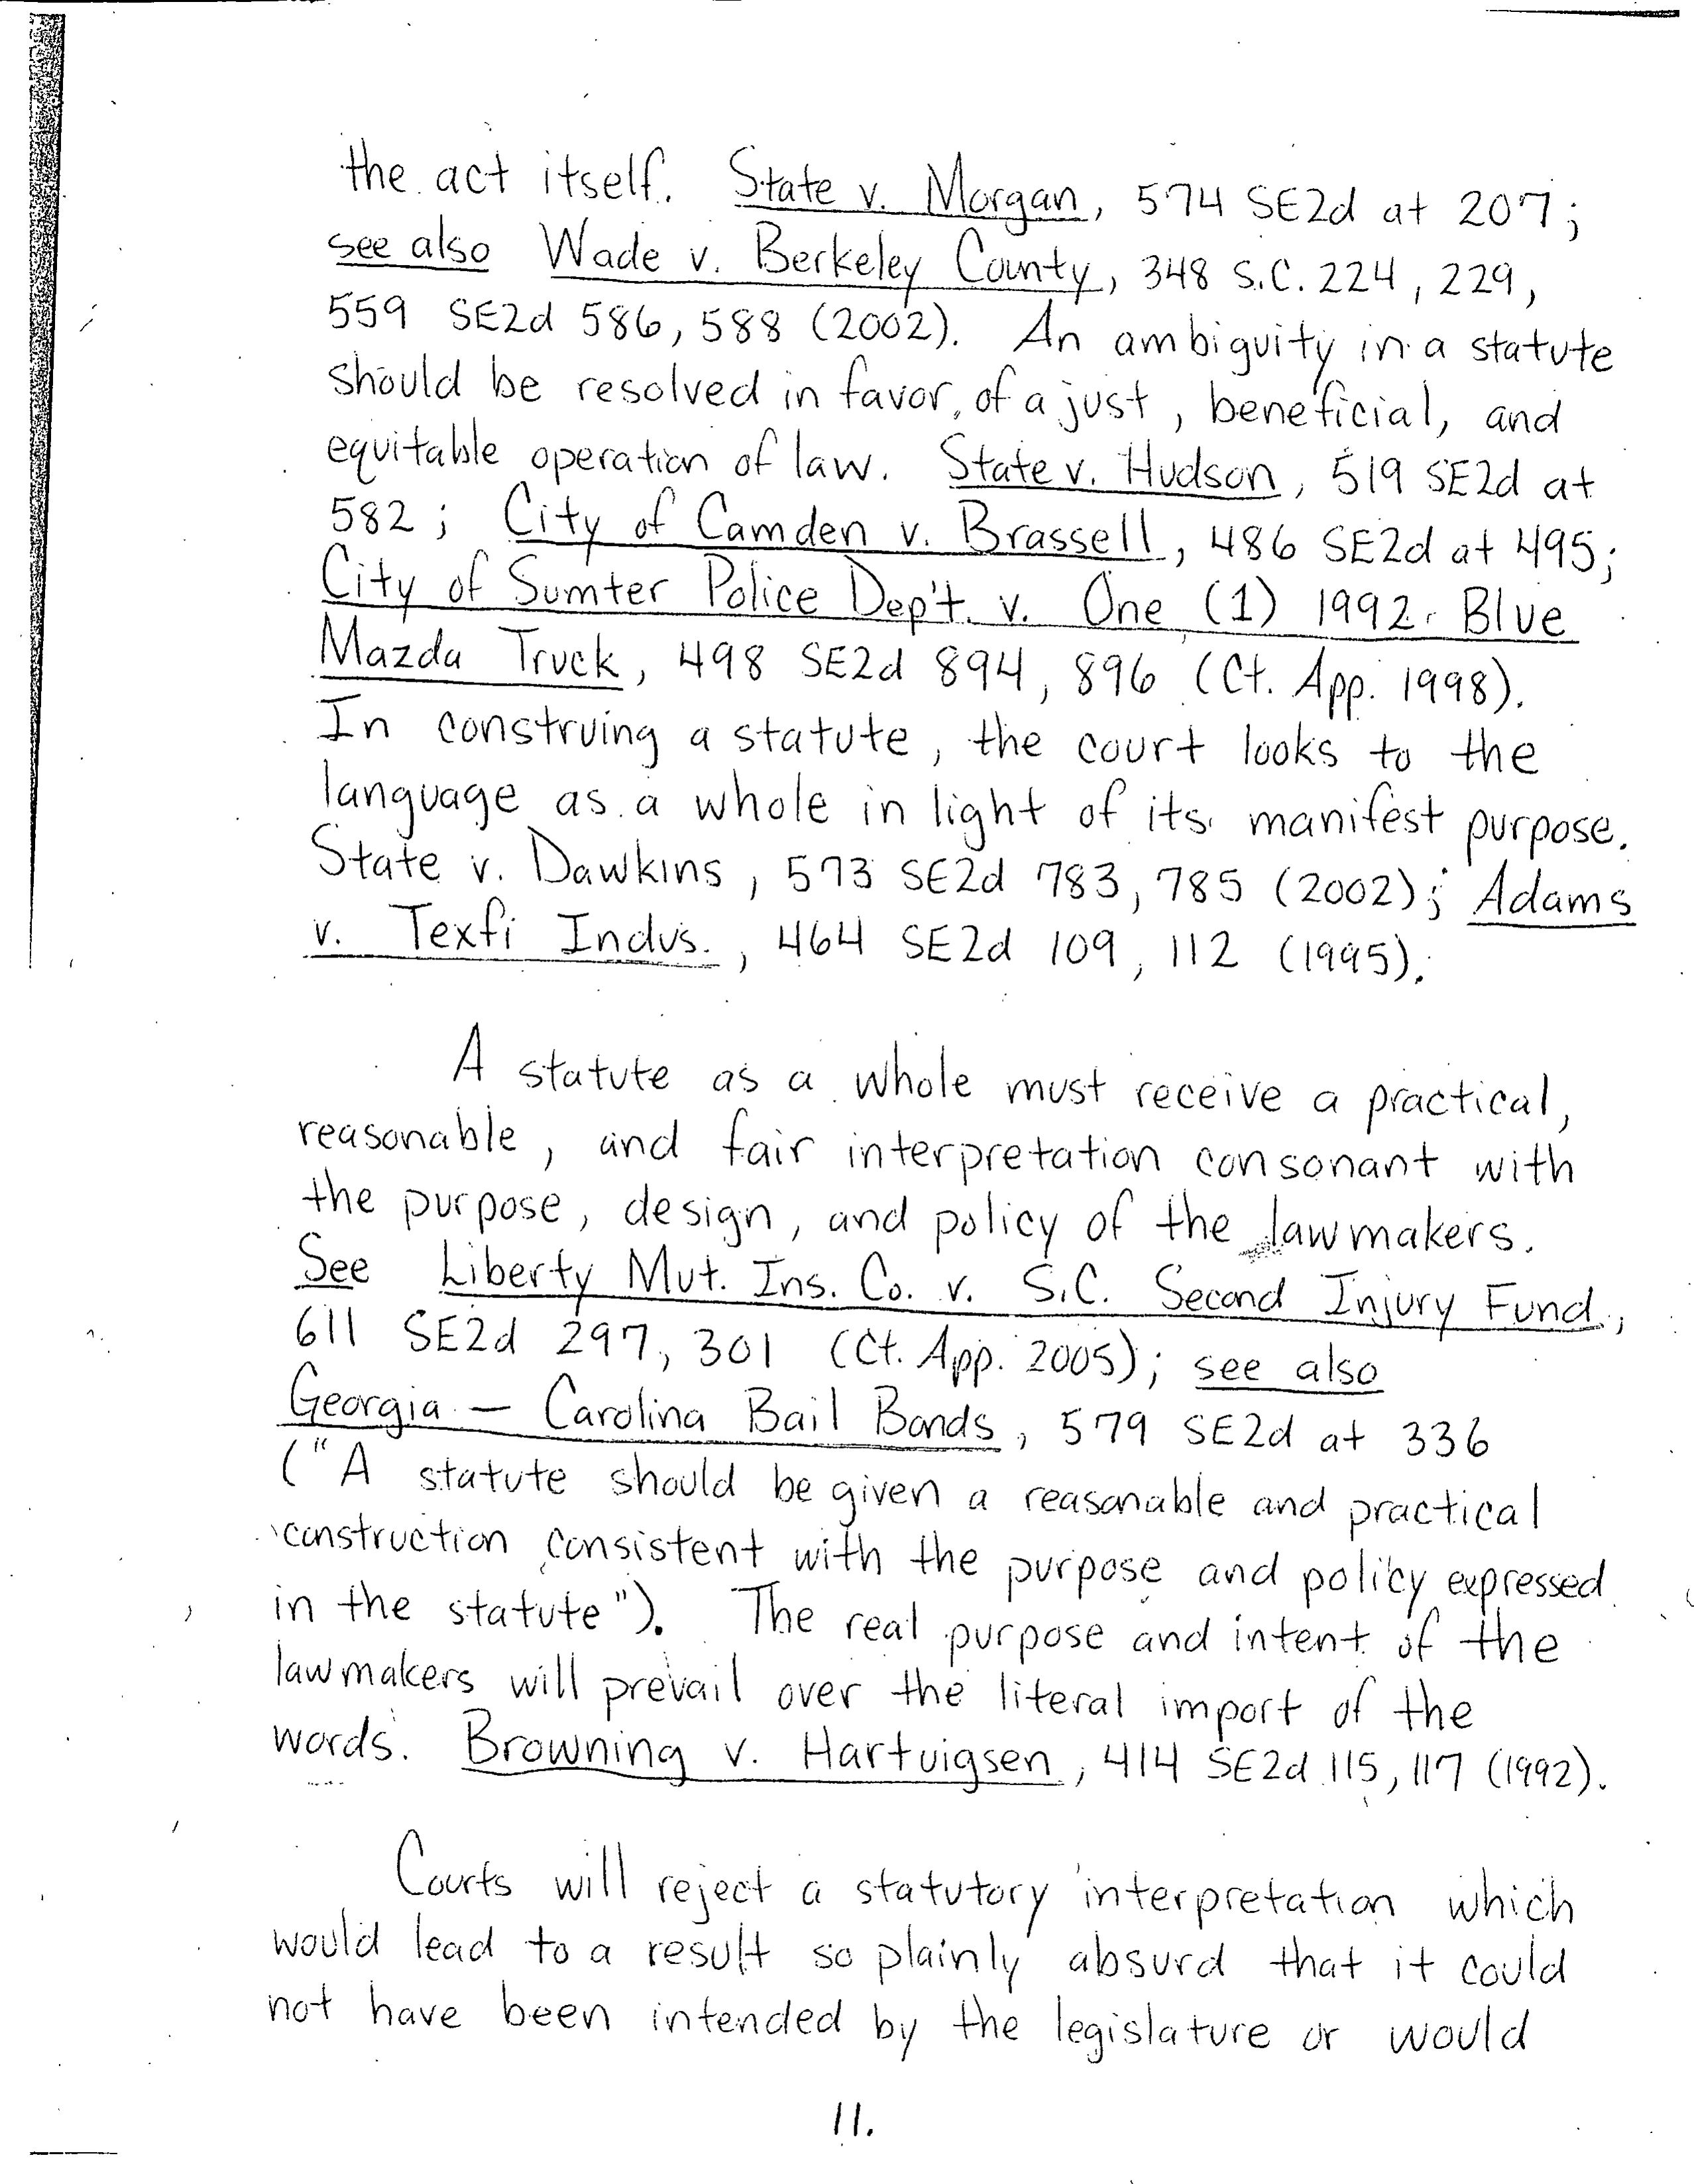 the act itself. State v. Morgan, 574 SE2d at 207;
see also Wade v. Berkeley County, 348 S.C. 224, 229,
559 SE2d 586, 588 (2002). An ambiguity in a statute
should be resolved in favor of a just, beneficial, and
equitable operation of law. State v. Hudson, 519 SE2d at
582; City of Camden v. Brassell, 486 SE2d at 495;
City of Sumter Police Dep't. v. One (1) 1992 Blue
Mazda Truck, 498 SE2d 894, 896 (Ct. App. 1998).
In construing a statute, the court looks to the
language as a whole in light of its manifest purpose.
State v. Dawkins, 573 SE2d 783, 785 (2002); Adams
v. Texfi Indus., 464 SE2d 109, 112 (1995).
A statute as a whole must receive a practical,
reasonable, and fair interpretation consonant with
the purpose, design, and policy of the lawmakers.
See Liberty Mut. Ins. Co. v. S.C. Second Injury Fund,
611 SE2d 297, 301 (Ct. App. 2005); see also
Georgia - Carolina Bail Bonds, 579 SE2d at 336
("A statute should be given a reasonable and practical
construction consistent with the purpose and policy expressed
in the statute"). The real purpose and intent of the
lawmakers will prevail over the literal import of the
words. Browning v. Hartvigsen, 414 SE2d 115, 117 (1992).
Courts will reject a statutory interpretation which
would lead to a result so plainly absurd that it could
not have been intended by the legislature or would
11.